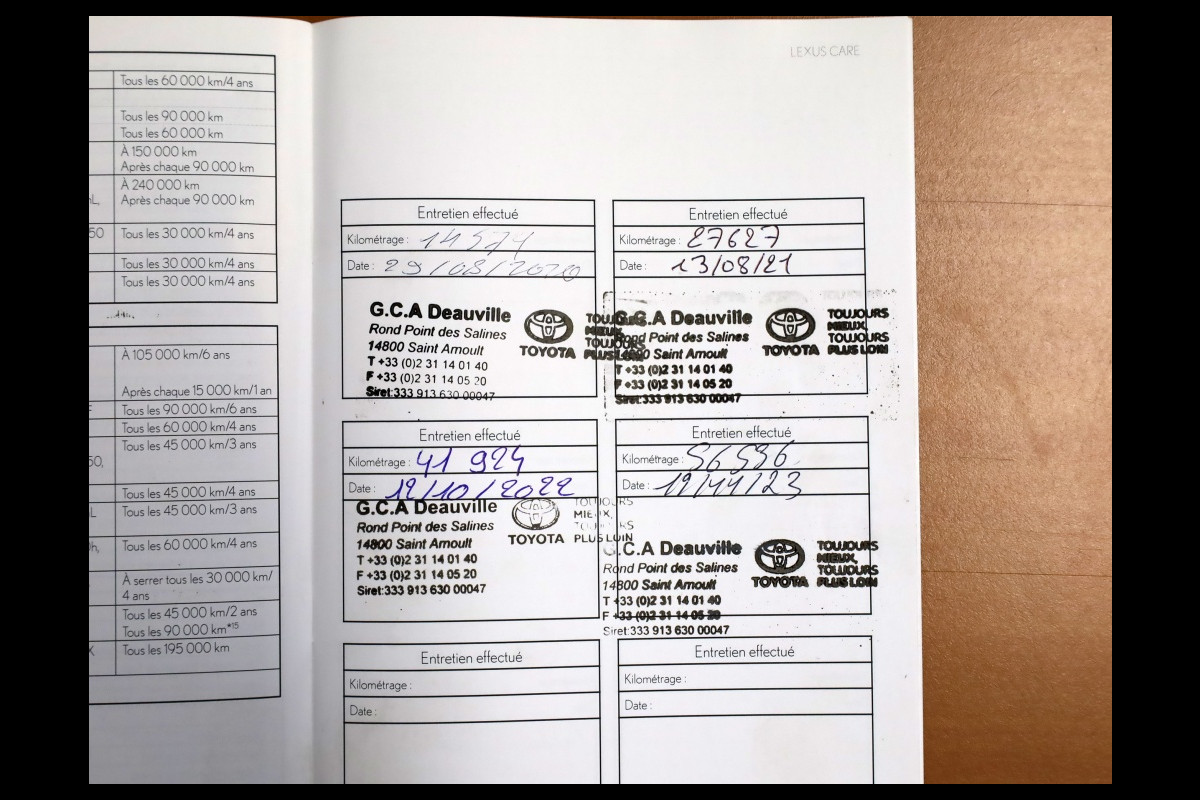 Tous les 60 000 km/4 ans
Tous les 90 000 km
Tous les 60 000 km
À 150 000 km
Après chaque 90 000 km
À 240 000 km
Après chaque 90 000 km
50 Tous les 30 000 km/4 ans
Tous les 30 000 km/4 ans
Tous les 30 000 km/4 ans
À 105 000 km/6 ans
Après chaque 15 000 km/1 an
Tous les 90 000 km/6 ans
Tous les 60 000 km/4 ans
Tous les 45 000 km/3 ans
Tous les 45 000 km/4 ans
Tous les 45 000 km/3 ans
Tous les 60 000 km/4 ans
À serrer tous les 30 000 km/
4 ans
Tous les 45 000 km/2 ans
Tous les 90 000 km*15
Tous les 195 000 km
LEXUS CARE
Entretien effectué
Kilométrage : 14 571
Date : 29/08/2020
G.C.A Deauville
Rond Point des Salines
14800 Saint Arnoult
T +33 (0)2 31 14 01 40
F +33 (0)2 31 14 05 20
Siret:333 913 630 00047
TOYOTA
TOUJOURS
MIEUX,
TOUJOURS
PLUS LOIN
Entretien effectué
Kilométrage : 27627
Date : 13/08/21
G.C.A Deauville
Rond Point des Salines
14800 Saint Arnoult
T +33 (0)2 31 14 01 40
F +33 (0)2 31 14 05 20
Siret:333 913 630 00047
TOYOTA
TOUJOURS
MIEUX,
TOUJOURS
PLUS LOIN
Entretien effectué
Kilométrage : 41 924
Date : 12/10/2022
G.C.A Deauville
Rond Point des Salines
14800 Saint Arnoult
T +33 (0)2 31 14 01 40
F +33 (0)2 31 14 05 20
Siret:333 913 630 00047
TOYOTA
TOUJOURS
MIEUX,
TOUJOURS
PLUS LOIN
Entretien effectué
Kilométrage : 56536
Date : 12/11/23
G.C.A Deauville
Rond Point des Salines
14800 Saint Arnoult
T +33 (0)2 31 14 01 40
F +33 (0)2 31 14 05 20
Siret:333 913 630 00047
TOYOTA
TOUJOURS
MIEUX,
TOUJOURS
PLUS LOIN
Entretien effectué
Kilométrage :
Date :
Entretien effectué
Kilométrage :
Date :